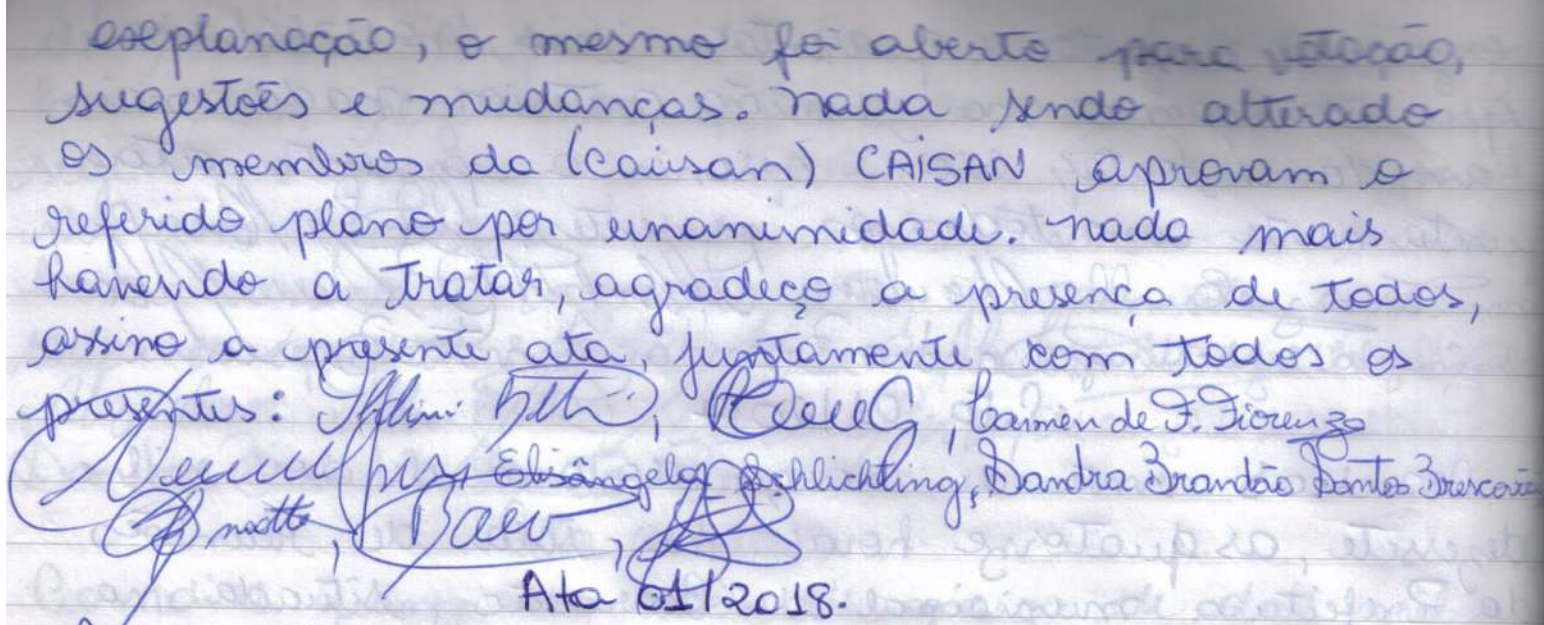 explanação, o mesmo foi aberto para votação,
sugestões e mudanças. Nada sendo alterado
os membros da (caisan) CAISAN aprovam o
referido plano por unanimidade. Nada mais
havendo a tratar, agradeço a presença de todos,
assino a presente ata, juntamente com todos os
presentes: Carmen de F. Fiorenzo
Elisângela Schlichting, Sandra Brandão Santos
Ata 01/2018.